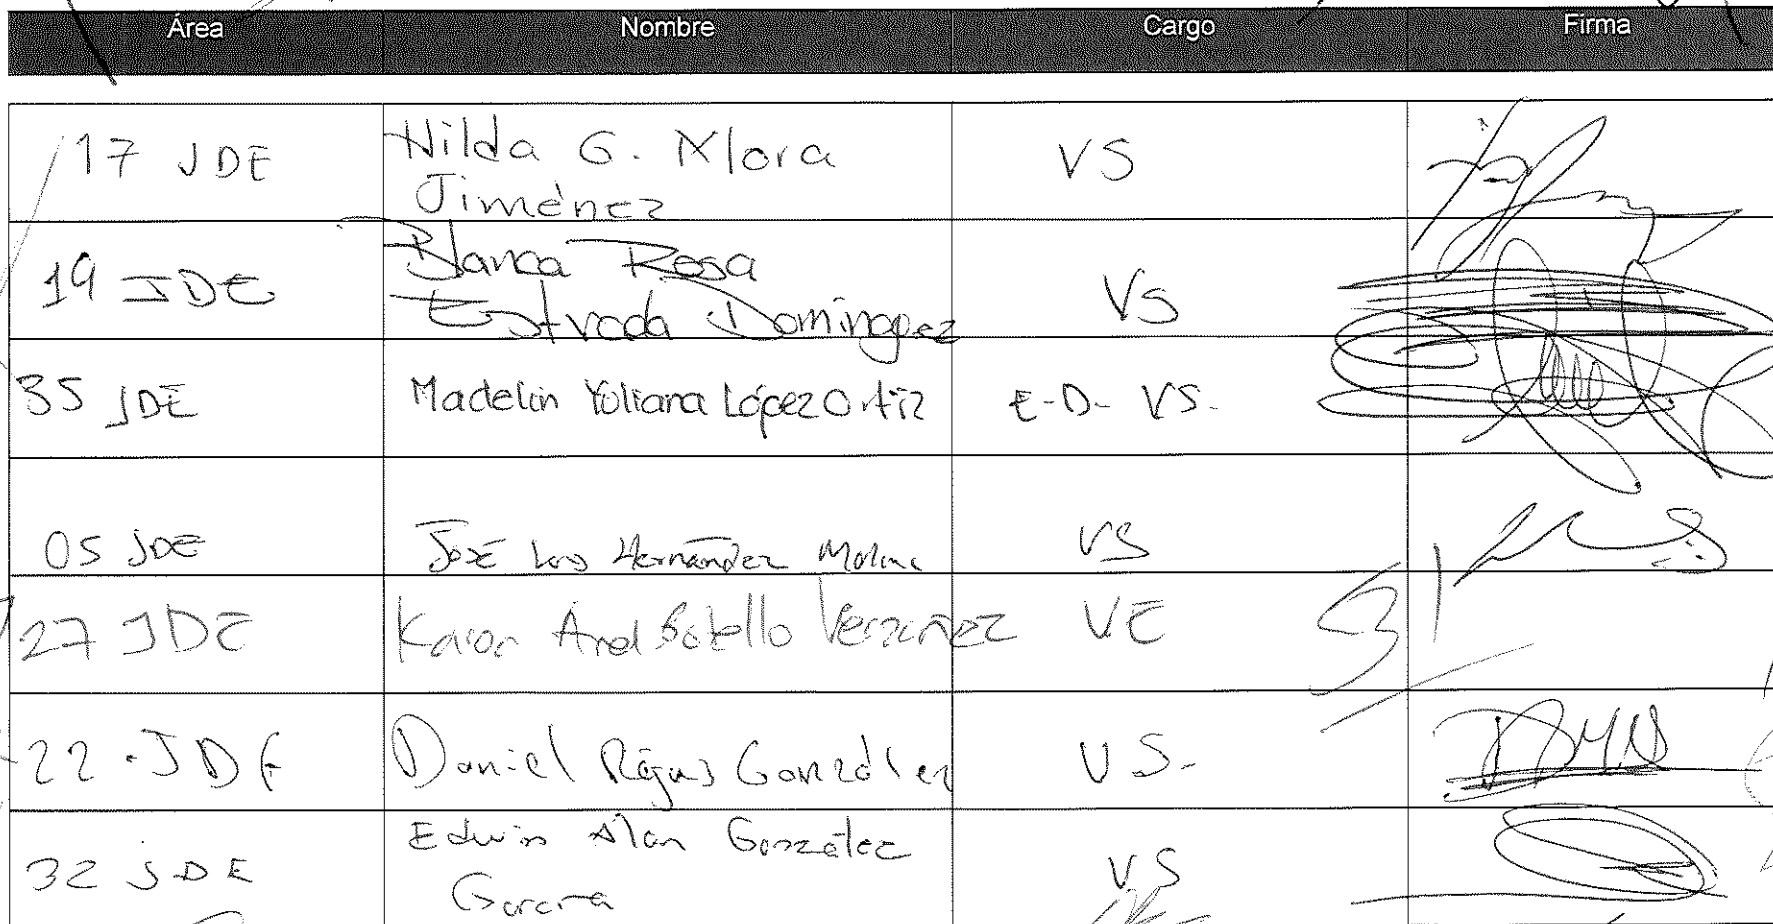 Área Nombre Cargo Firma
17 JDE Hilda G. Mora Jiménez VS
19 JDE Blanca Rosa Estrada Domínguez VS
35 JDE Madelin Yuliana López Ortiz E-D- VS-
05 JDE José Luis Hernández Molina VS
27 JDE Karen Anel Botello VE
22 JDE Daniel Rojas González VS-
32 JDE Edwin Alan González VS